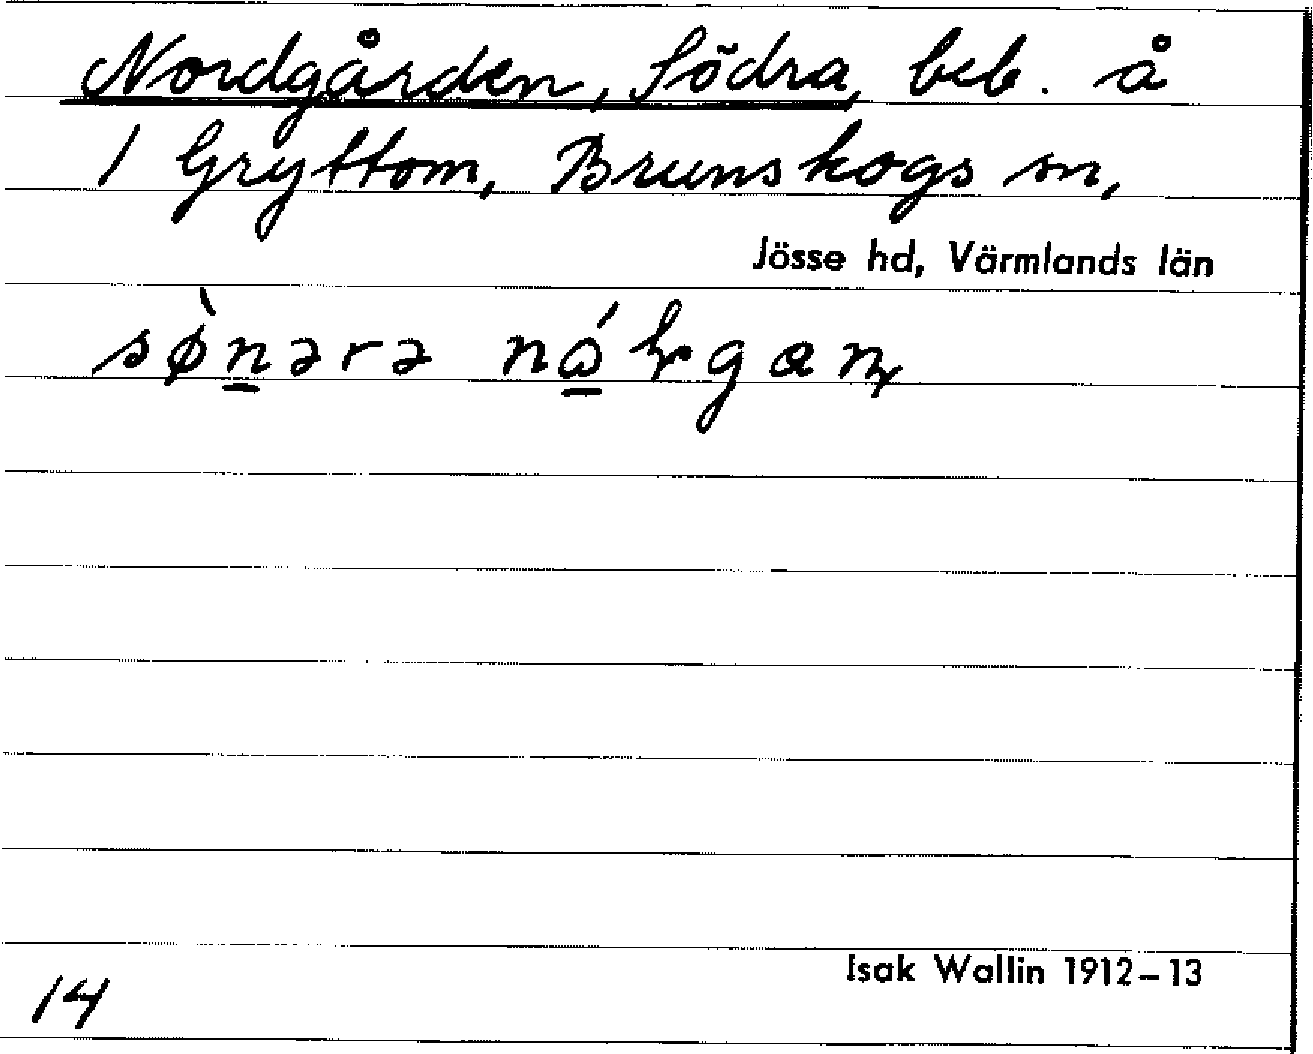 Nordgården, Södra, beb. å
1 Gryttom, Brunskogs sn,
Jösse hd, Värmlands län
sø̀n̲ərə
Isak Wallin 1912–13
14